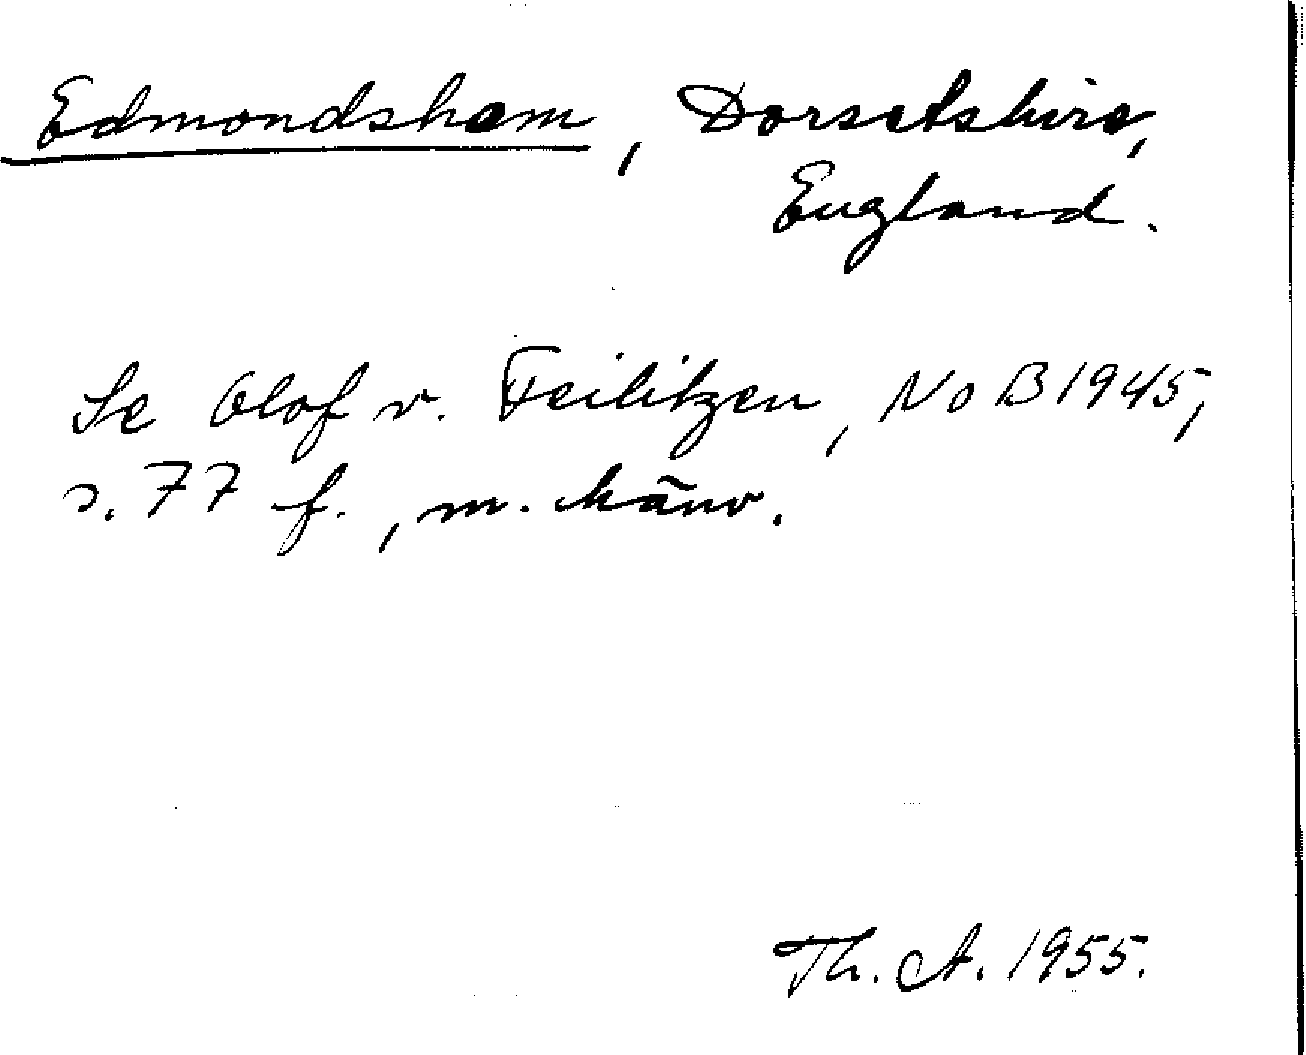 Edmondsham, Dorsetshire,
England.
Se Olof v. Feilitzen, NoB 1945,
s. 77 f., m. hänv.
Th. A. 1955.